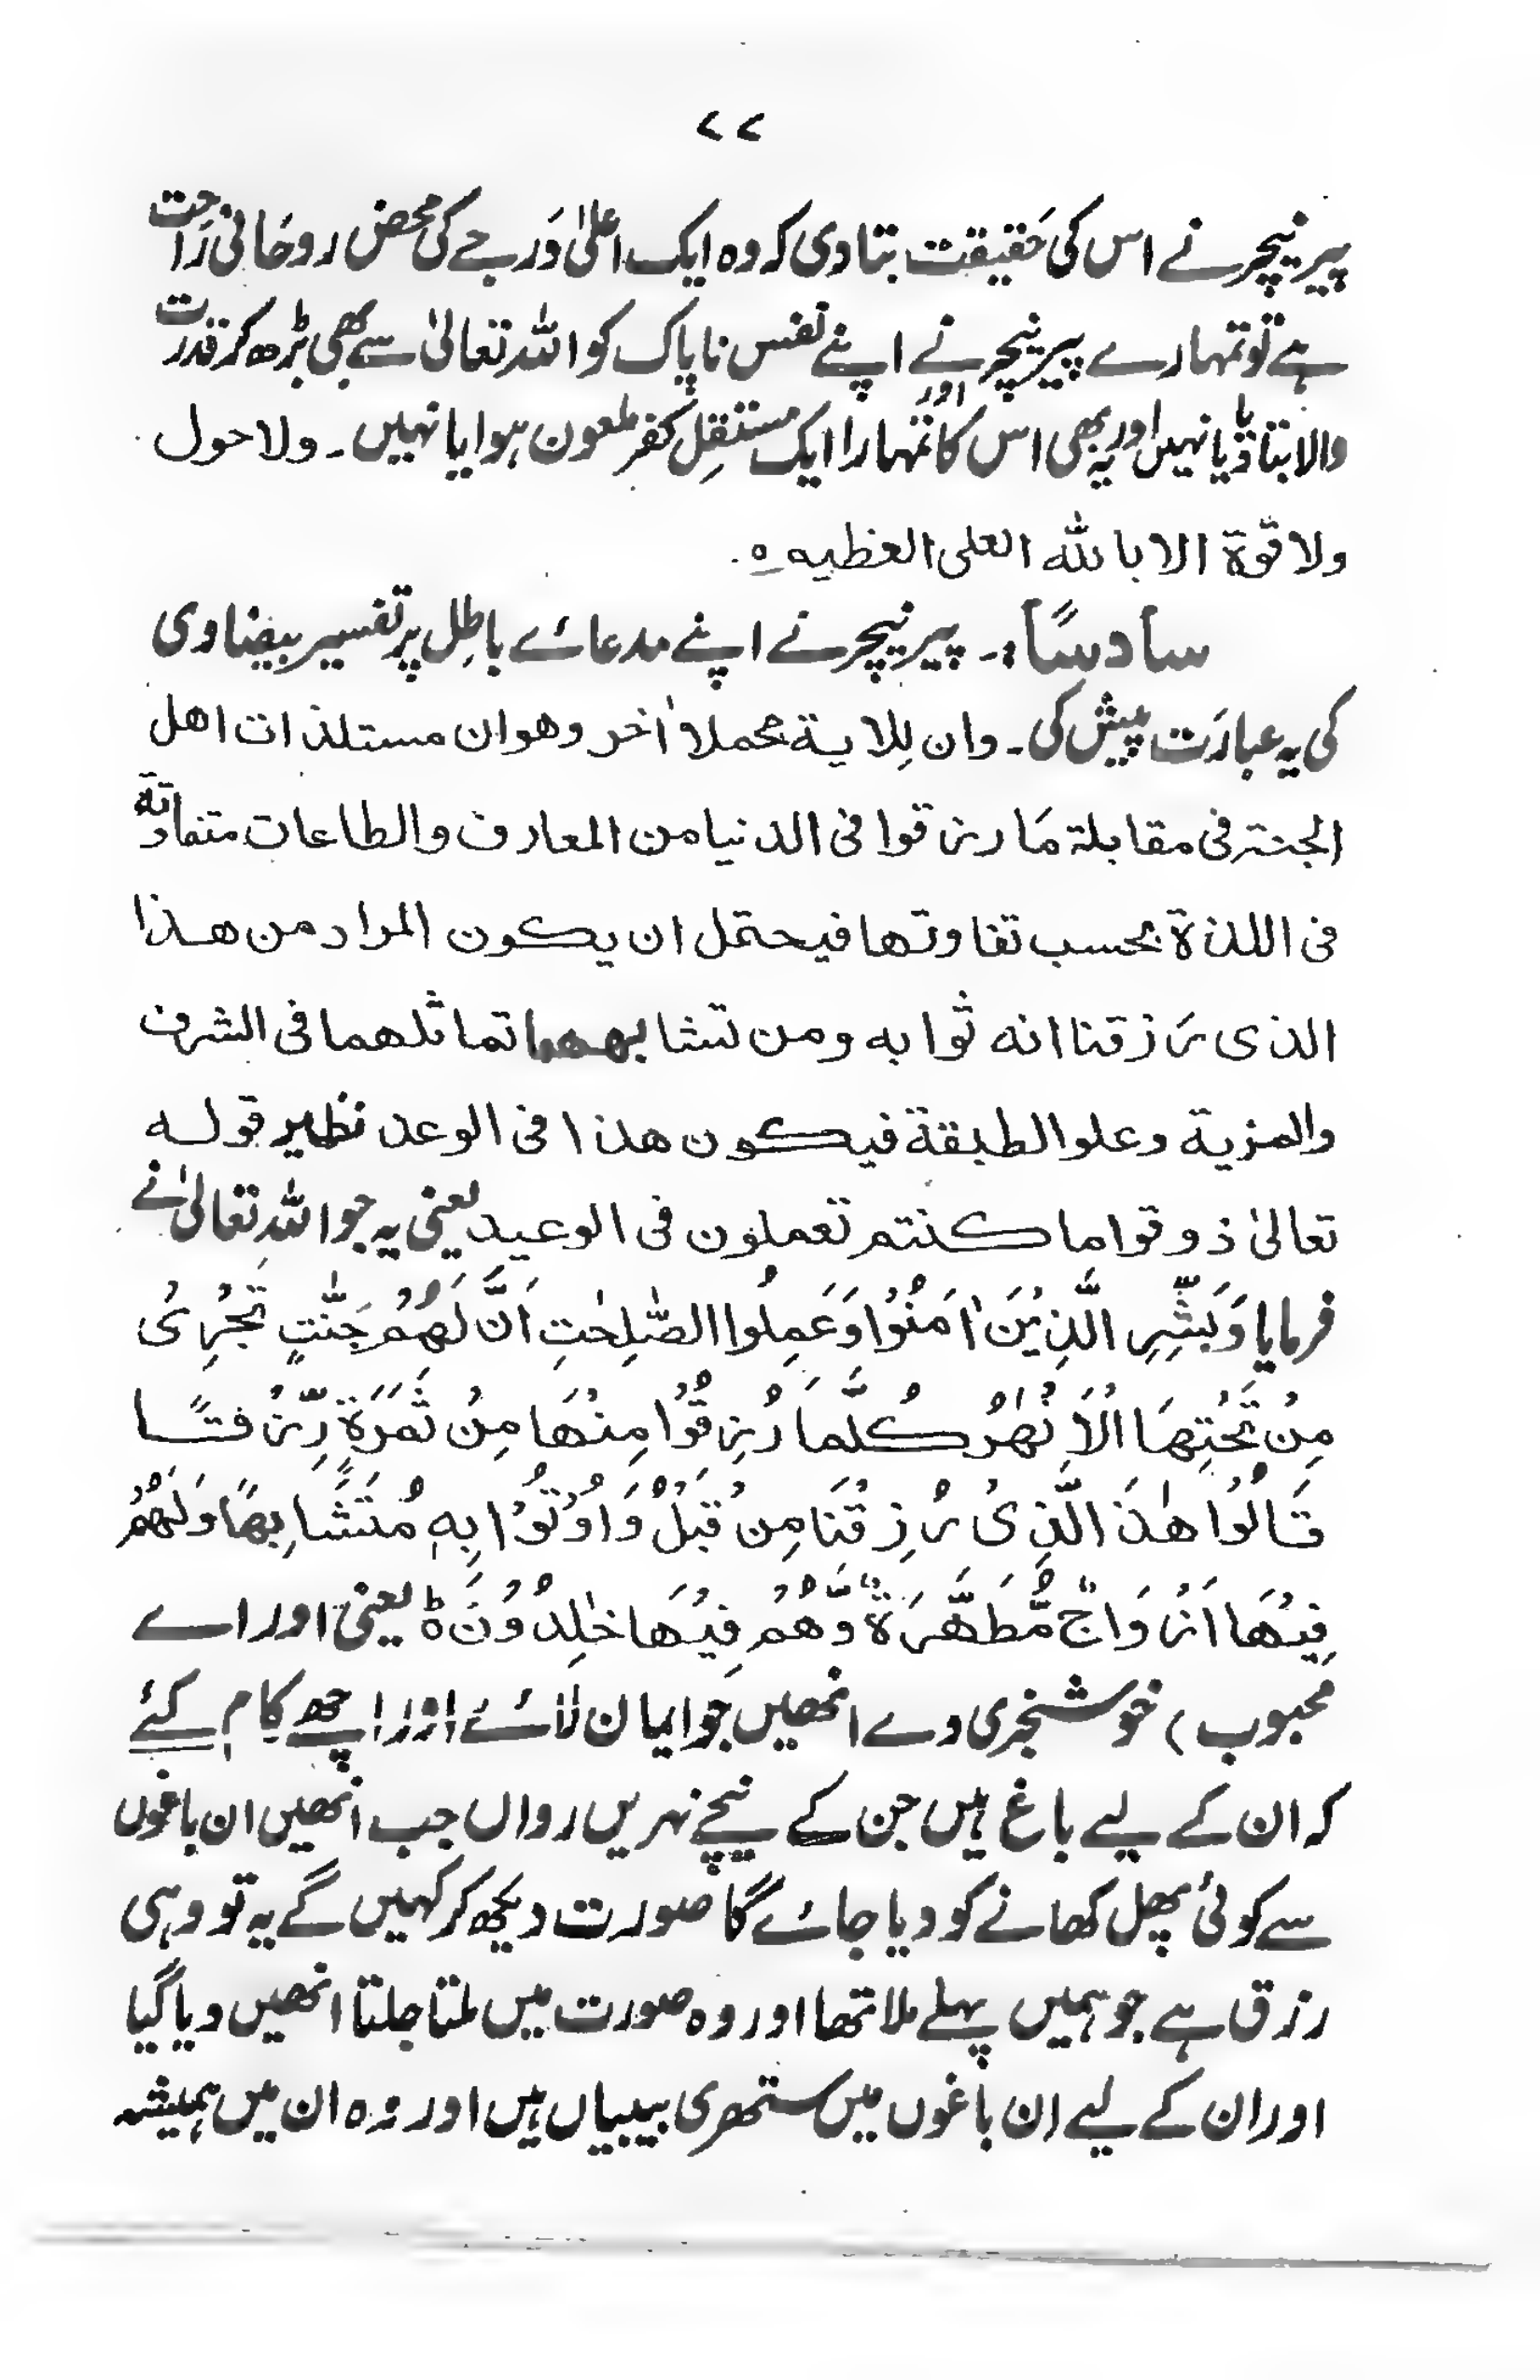 ۷۷
پیر نیچر نے اس کی حقیقت بتا دی کہ وہ ایک اعلیٰ دَرجے کی محض روحانی رَاحت
ہے تو تمہارے پیر نیچر نے اپنے نفس ناپاک کو اللہ تعالیٰ سے بھی بڑھ کر قدرت
والا بتا دیا یا نہیں اور یہ بھی اس کا اور تمہارا ایک مستقِل کفر ملعون ہوا یا نہیں۔ ولا حول
ولا قوة الا باللہ العلی العظیم ہ
سادسًا:۔ پیر نیچر نے اپنے مدعائے باطِل پر تفسیر بیضاوی
کی یہ عبارَت پیش کی۔ وان لِلایة محملا اٰخر وھو ان مستلذات اھل
الجنة فی مقابلة مَا رزقوا فی الدنیا من المعارف والطاعات متفاوتة
فی اللذة بحسب تفاوتھا فیحتمل ان یکون المراد من ھذا
الذی رَزقنا انه ثوابه ومن تشابھھما تماثلھما فی الشرف
والمزیة وعلو الطبقة فیکون ھذا فی الوعد نظیر قوله
تعالیٰ ذوقوا ما کنتم تعملون فی الوعید یعنی یہ جو اللہ تعالیٰ نے
فرمایا وَبَشِّرِ الَّذِیْنَ اٰمَنُوْا وَعَمِلُوا الصّٰلِحٰتِ اَنَّ لَھُمْ جَنّٰتٍ تَجْرِیْ
مِنْ تَحْتِھَا الْاَنْھٰرُ کُلَّمَا رُزِقُوْا مِنْھَا مِنْ ثَمَرَةٍ رِّزْقًا
قَالُوْا ھٰذَا الَّذِیْ رُزِقْنَا مِنْ قَبْلُ وَاُوْتُوْا بِهٖ مُتَشَابِھًا وَلَھُمْ
فِیْھَا اَزْوَاجٌ مُّطَھَّرَةٌ وَّھُمْ فِیْھَا خٰلِدُوْنَ ؕ یعنی اور اے
محبوب) خوشخبری دے انھیں جو ایمان لائے اور اچھے کام کئے
کہ ان کے لیے باغ ہیں جن کے نیچے نہریں رواں جب انھیں ان باغوں
سے کوئی پھل کھانے کو دیا جائے گا صورت دیکھ کر کہیں گے یہ تو وہی
رزق ہے جو ہمیں پہلے ملا تھا اور وہ صورت میں ملتا جلتا انھیں دیا گیا
اور ان کے لیے ان باغوں میں ستھری بیبیاں ہیں اور وہ ان میں ہمیشہ